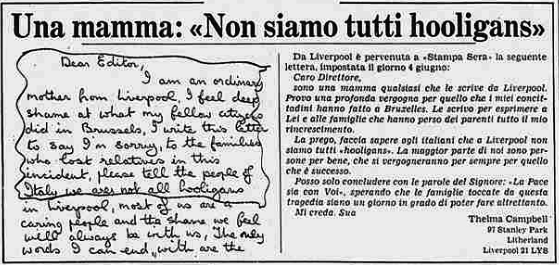 Una mamma: «Non siamo tutti hooligans»
Dear Editor,
I am an ordinary
mother from Liverpool, I feel deep
shame at what my fellow citizens
did in Brussels, I write this letter
to say I'm sorry, to the families
who lost relatives in this
incident, please tell the people of
Italy we are not all hooligans
in Liverpool, most of us are a
caring people and the shame we feel
will always be with us, The only
words I can end, with are the
Da Liverpool è pervenuta a «Stampa Sera» la seguente
lettera, impostata il giorno 4 giugno:
Caro Direttore,
sono una mamma qualsiasi che le scrive da Liverpool.
Provo una profonda vergogna per quello che i miei concit-
tadini hanno fatto a Bruxelles. Le scrivo per esprimere a
Lei e alle famiglie che hanno perso dei parenti tutto il mio
rincrescimento.
La prego, faccia sapere agli italiani che a Liverpool non
siamo tutti «hooligans». La maggior parte di noi sono per-
sone per bene, che si vergogneranno per sempre per quello
che è successo.
Posso solo concludere con le parole del Signore: «La Pace
sia con Voi», sperando che le famiglie toccate da questa
tragedia siano un giorno in grado di poter fare altrettanto.
Mi creda. Sua
Thelma Campbell
97 Stanley Park
Litherland
Liverpool 21 LY8